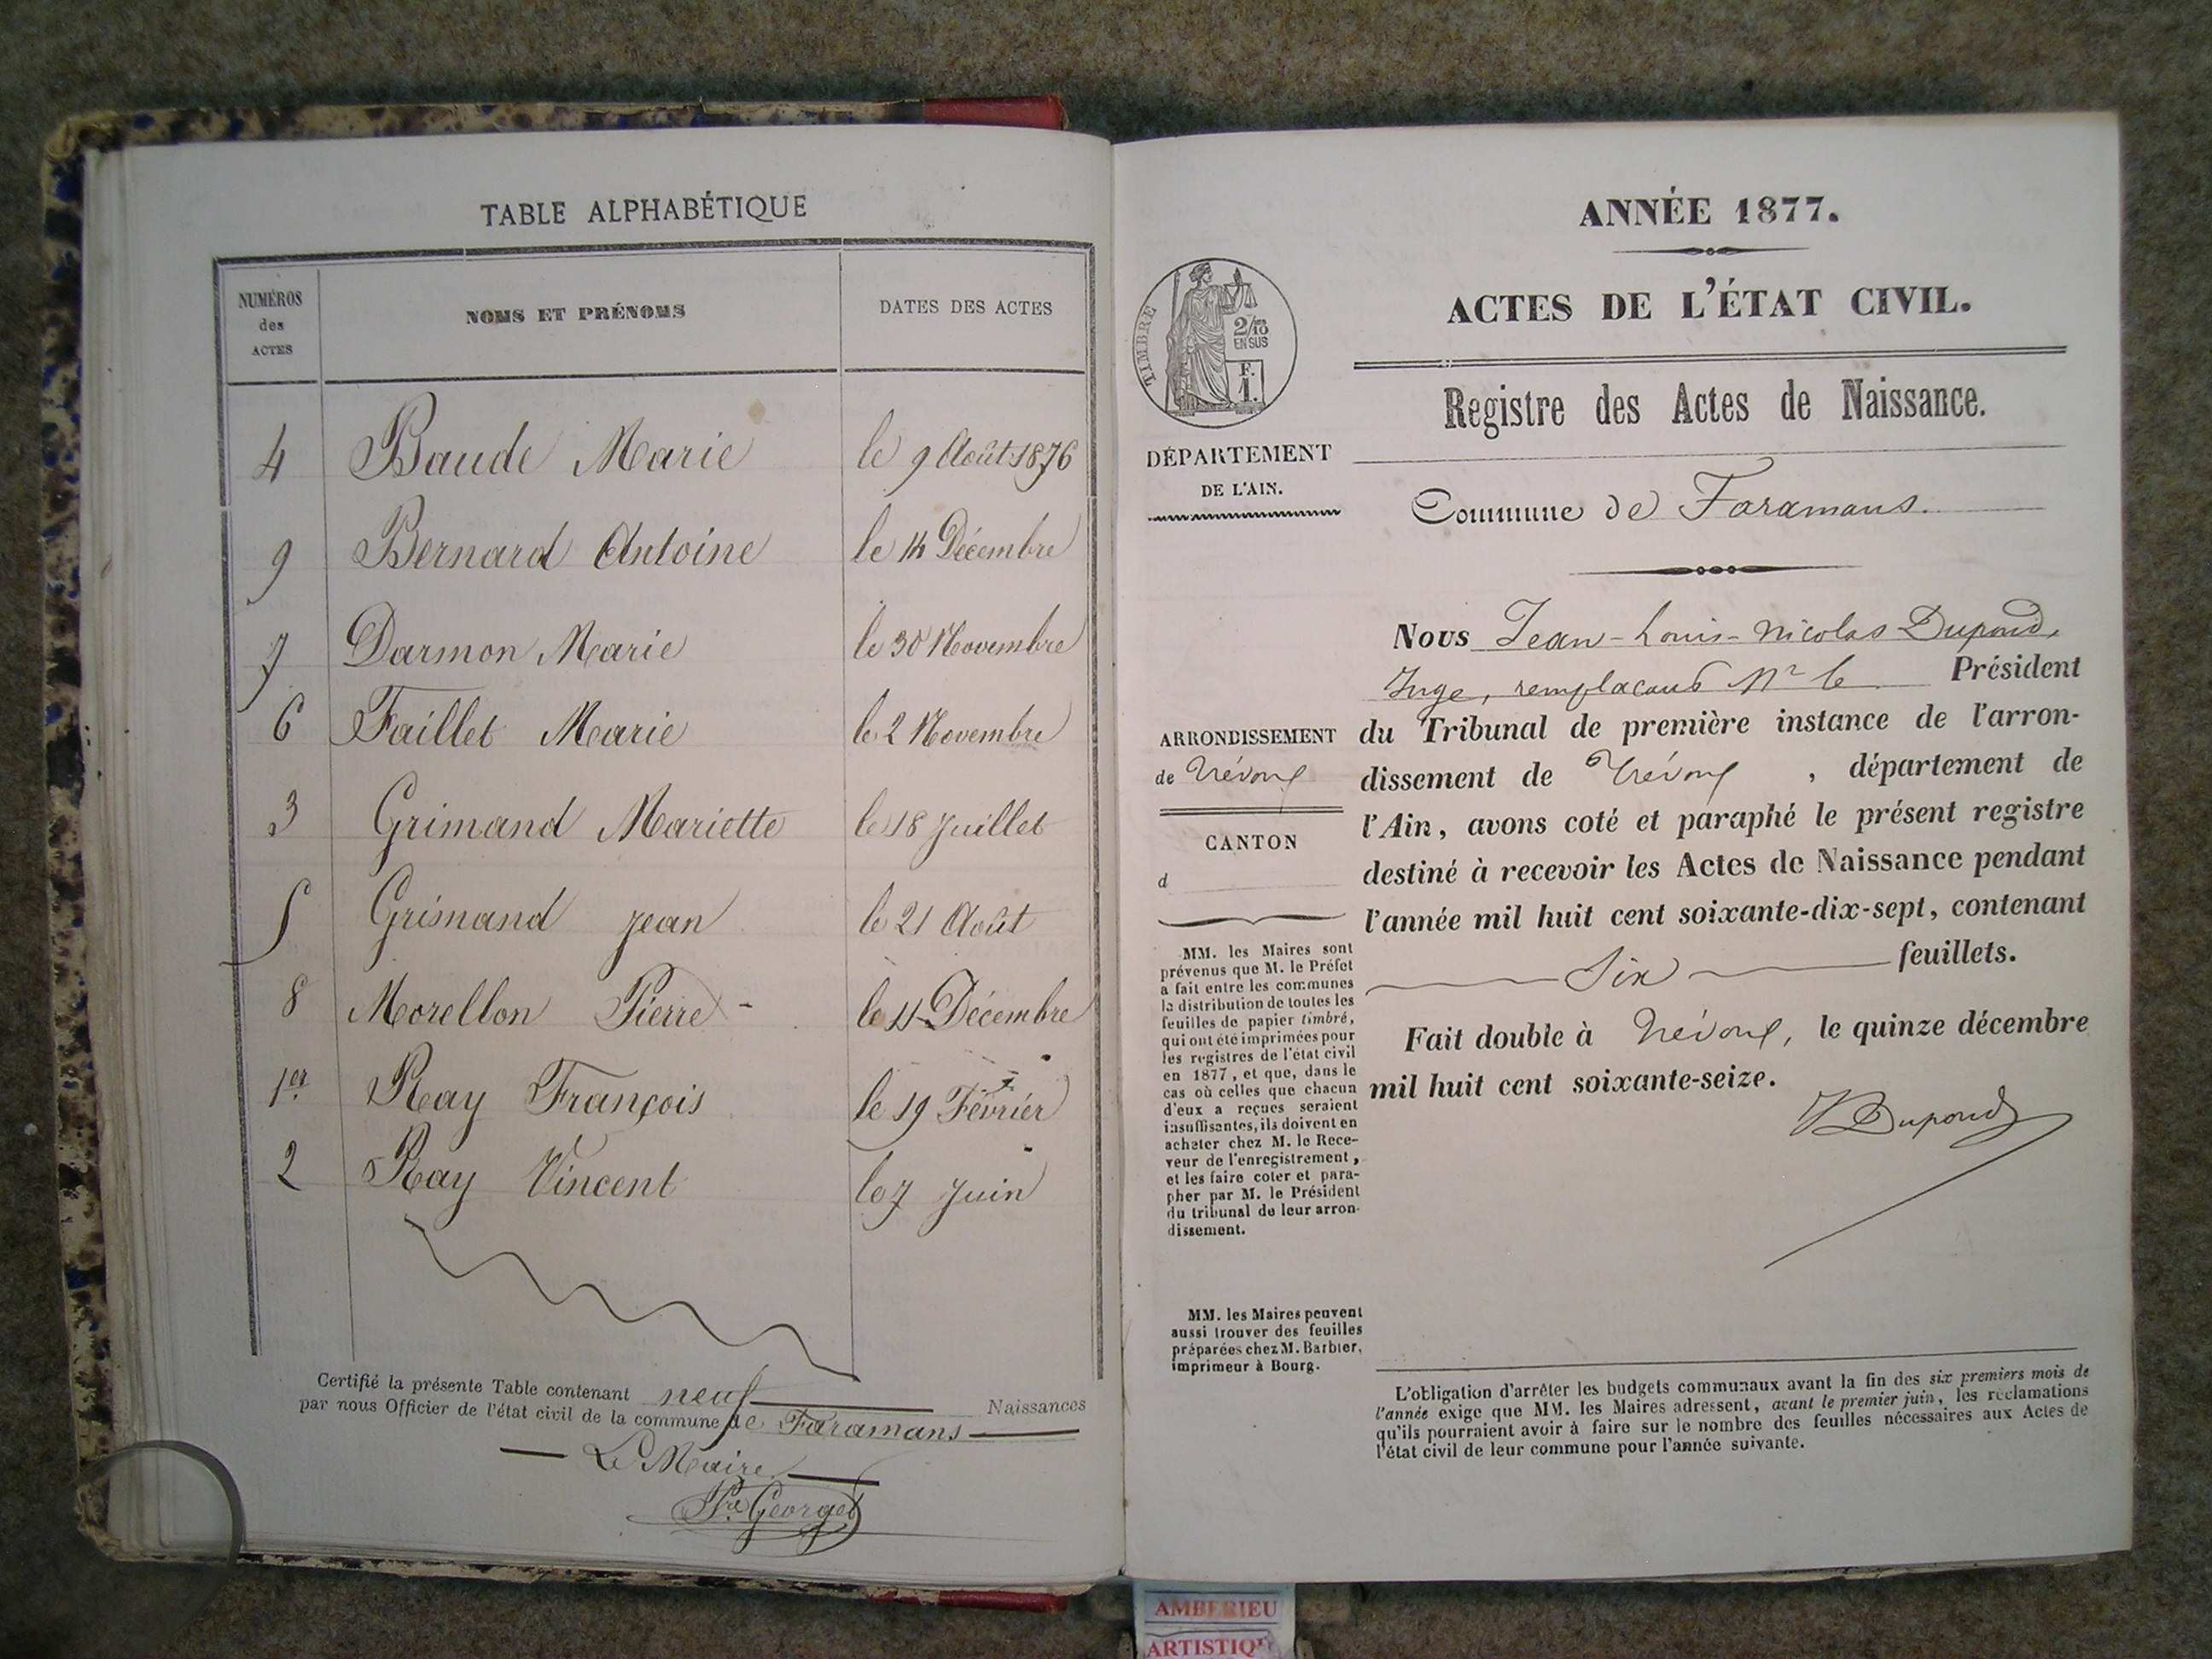 TABLE ALPHABÉTIQUE
NUMÉROS des ACTES NOMS ET PRÉNOMS DATES DES ACTES
4 Baude Marie le 9 Août 1876
9 Bernard Antoine le 14 Décembre
7 Darmon Marie le 30 Novembre
6 Faillet Marie le 2 Novembre
3 Grimand Mariette le 18 Juillet
5 Grimand Jean le 21 Août
8 Morellon Pierre - le 11 Décembre
1er Ray François le 19 Février
2 Ray Vincent le 7 Juin
Certifié la présente Table contenant neuf Naissances
par nous Officier de l'état civil de la commune de Faramans
Le Maire
Pre Georges
ANNÉE 1877.
ACTES DE L'ÉTAT CIVIL.
TIMBRE
2/10
EN SUS
F.
1.
Registre des Actes de Naissance.
DÉPARTEMENT
DE L'AIN.
Commune de Faramans.
Nous Jean-Louis-Nicolas Dupond,
Juge, remplaçant Mr le Président
du Tribunal de première instance de l'arron-
dissement de Trévoux, département de
l'Ain, avons coté et paraphé le présent registre
destiné à recevoir les Actes de Naissance pendant
l'année mil huit cent soixante-dix-sept, contenant
Six feuillets.
Fait double à Trévoux, le quinze décembre
mil huit cent soixante-seize.
Dupond
ARRONDISSEMENT
de Trévoux
CANTON
d
MM. les Maires sont
prévenus que M. le Préfet
a fait entre les communes
la distribution de toutes les
feuilles de papier timbré,
qui ont été imprimées pour
les registres de l'état civil
en 1877, et que, dans le
cas où celles que chacun
d'eux a reçues seraient
insuffisantes, ils doivent en
acheter chez M. le Rece-
veur de l'enregistrement,
et les faire coter et para-
pher par M. le Président
du tribunal de leur arron-
dissement.
MM. les Maires peuvent
aussi trouver des feuilles
préparées chez M. Barbier,
imprimeur à Bourg.
L'obligation d'arrêter les budgets communaux avant la fin des six premiers mois de
l'année exige que MM. les Maires adressent, avant le premier juin, les réclamations
qu'ils pourraient avoir à faire sur le nombre des feuilles nécessaires aux Actes de
l'état civil de leur commune pour l'année suivante.
AMBERIEU
ARTISTIQU